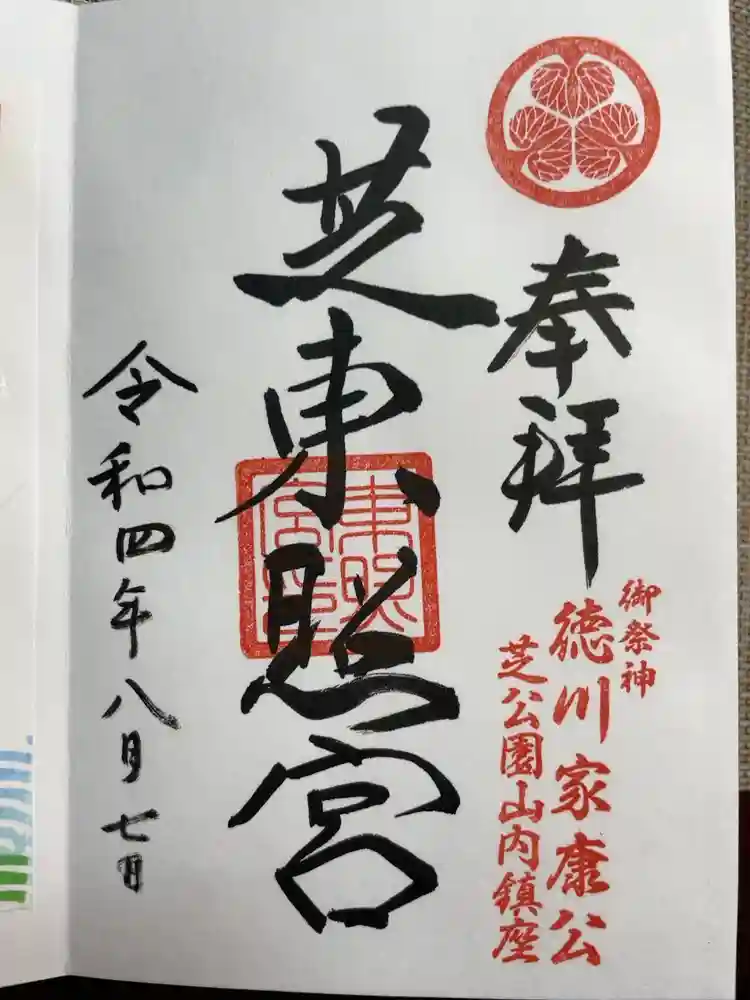 奉拝
御祭神
徳川家康公
芝公園山内鎮座
芝東照宮
東照
宮印
令和四年八月七日